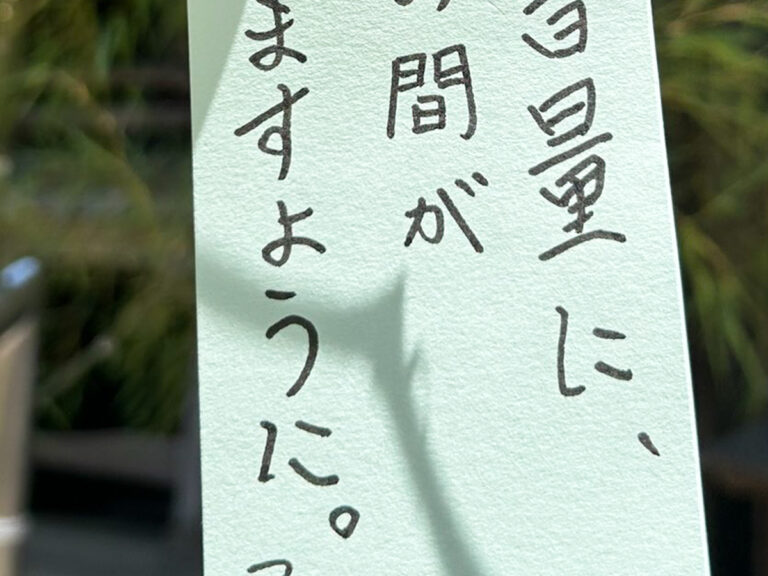 量に、
間が
ますように。